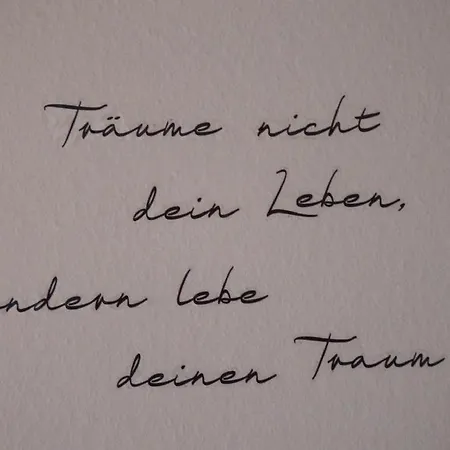 Träume nicht
dein Leben,
ndern lebe
deinen Traum